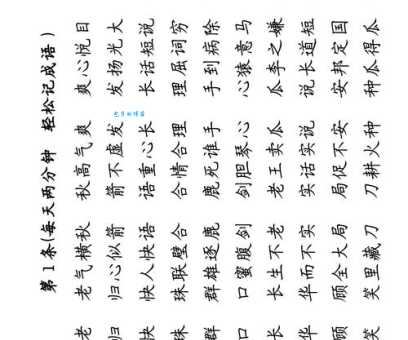 第1条(每天两分钟 轻松记成语)
老 老气横秋 秋高气爽 爽心悦目
归 归心似箭 箭不虚发 发扬光大
快 快人快语 语重心长 长话短说
珠 珠联璧合 合情合理 理屈词穷
群 群雄逐鹿 鹿死谁手 手到病除
口 口蜜腹剑 剑胆琴心 心猿意马
长 长生不老 老王卖瓜 瓜李之嫌
华 华而不实 实话实说 说长道短
顾 顾全大局 局促不安 安邦定国
笑 笑里藏刀 刀耕火种 种瓜得瓜